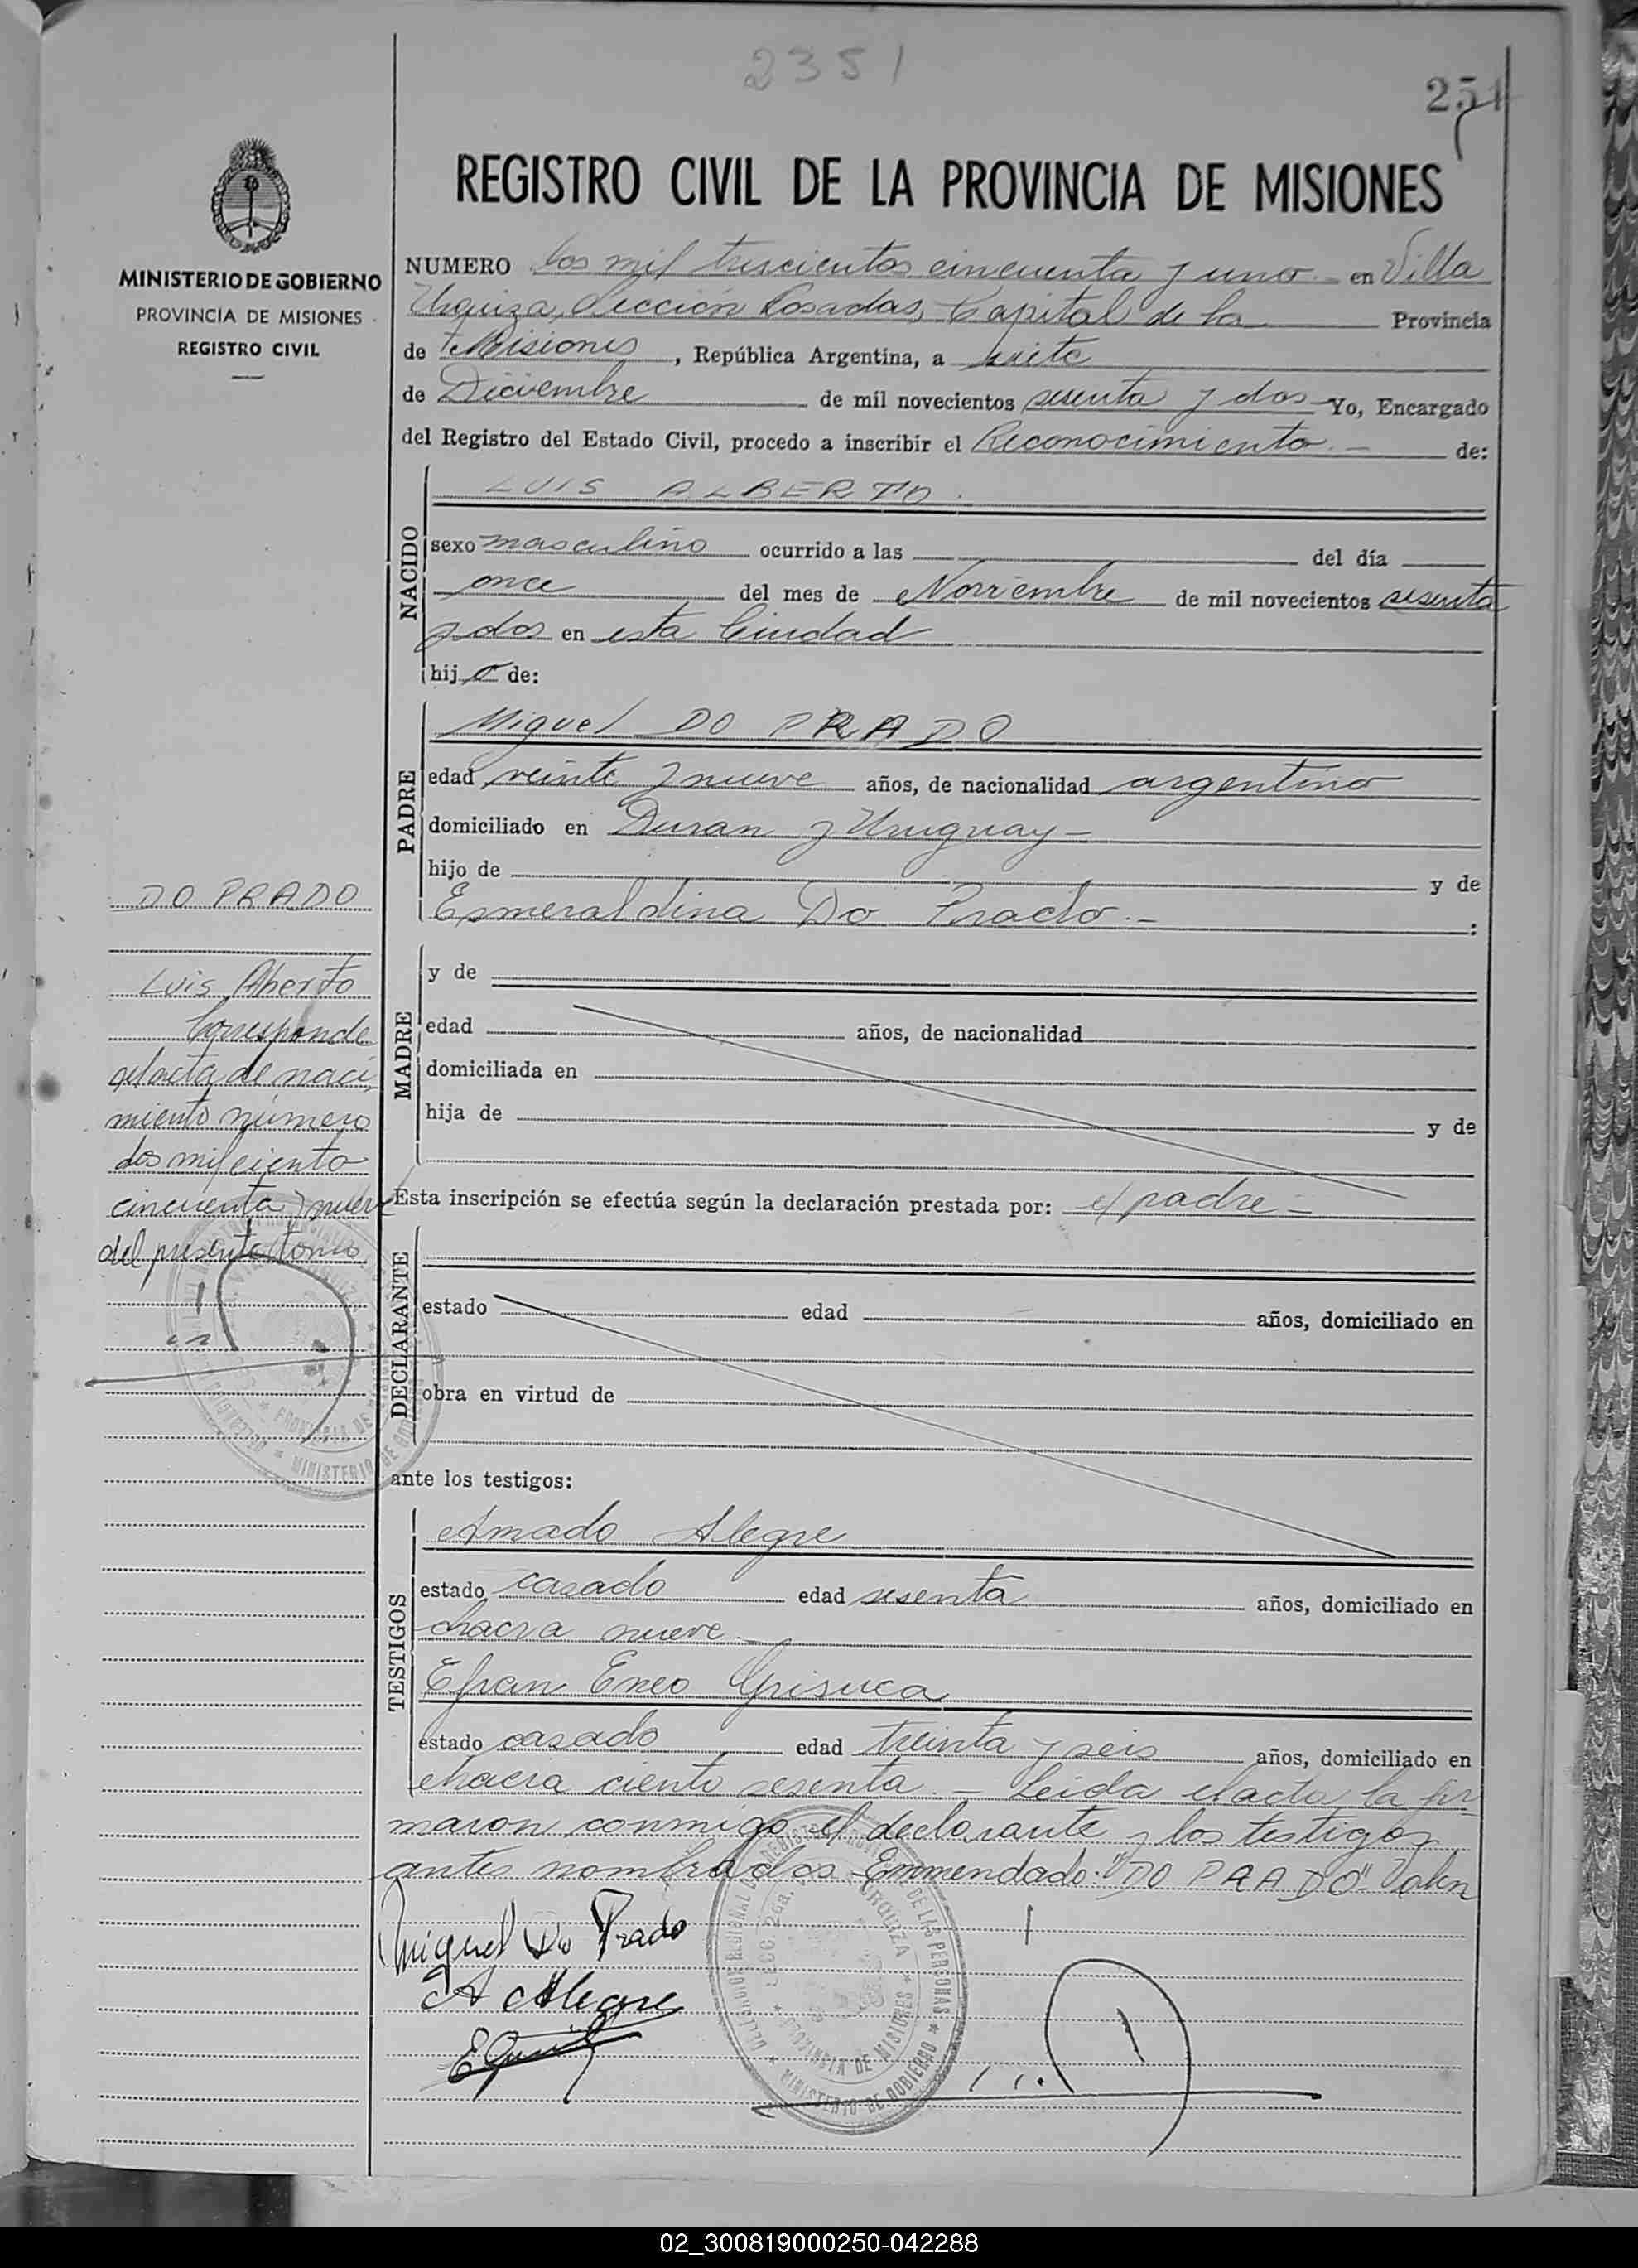 2351
251
REGISTRO CIVIL DE LA PROVINCIA DE MISIONES
MINISTERIO DE GOBIERNO
PROVINCIA DE MISIONES
REGISTRO CIVIL
NUMERO dos mil trescientos cincuenta y uno - en Villa
Urquiza, Sección Posadas, Capital de la Provincia
de Misiones, República Argentina, a siete
de Diciembre de mil novecientos sesenta y dos Yo, Encargado
del Registro del Estado Civil, procedo a inscribir el Reconocimiento.- de:
NACIDO
LUIS ALBERTO.
sexo masculino ocurrido a las del día
once del mes de Noviembre de mil novecientos sesenta
y dos en esta Ciudad
hijo de:
PADRE
Miguel DO PRADO
edad veinte y nueve años, de nacionalidad argentino
domiciliado en Duran y Uruguay-
hijo de y de
Esmeraldina Do Prado.- :
MADRE
y de
edad años, de nacionalidad
domiciliada en
hija de y de
Esta inscripción se efectúa según la declaración prestada por: el padre-
DECLARANTE
estado edad años, domiciliado en
obra en virtud de
ante los testigos:
TESTIGOS
Amado Alegre
estado casado edad sesenta años, domiciliado en
chacra nueve-
Efran Eneo
estado casado edad treinta y seis años, domiciliado en
chacra ciento sesenta.- Leida el acta la fir
maron conmigo el declarante y los testigos
antes nombrados-Enmendado:"DO PRADO"-Valen
Miguel Do Prado
A Alegre
DO PRADO
Luis Alberto
Corresponde
al acta de naci
miento número
dos mil ciento
cincuenta y nueve
del presente tomo
PROVINCIA DE MISIONES
MINISTERIO DE GOBIERNO
02_300819000250-042288